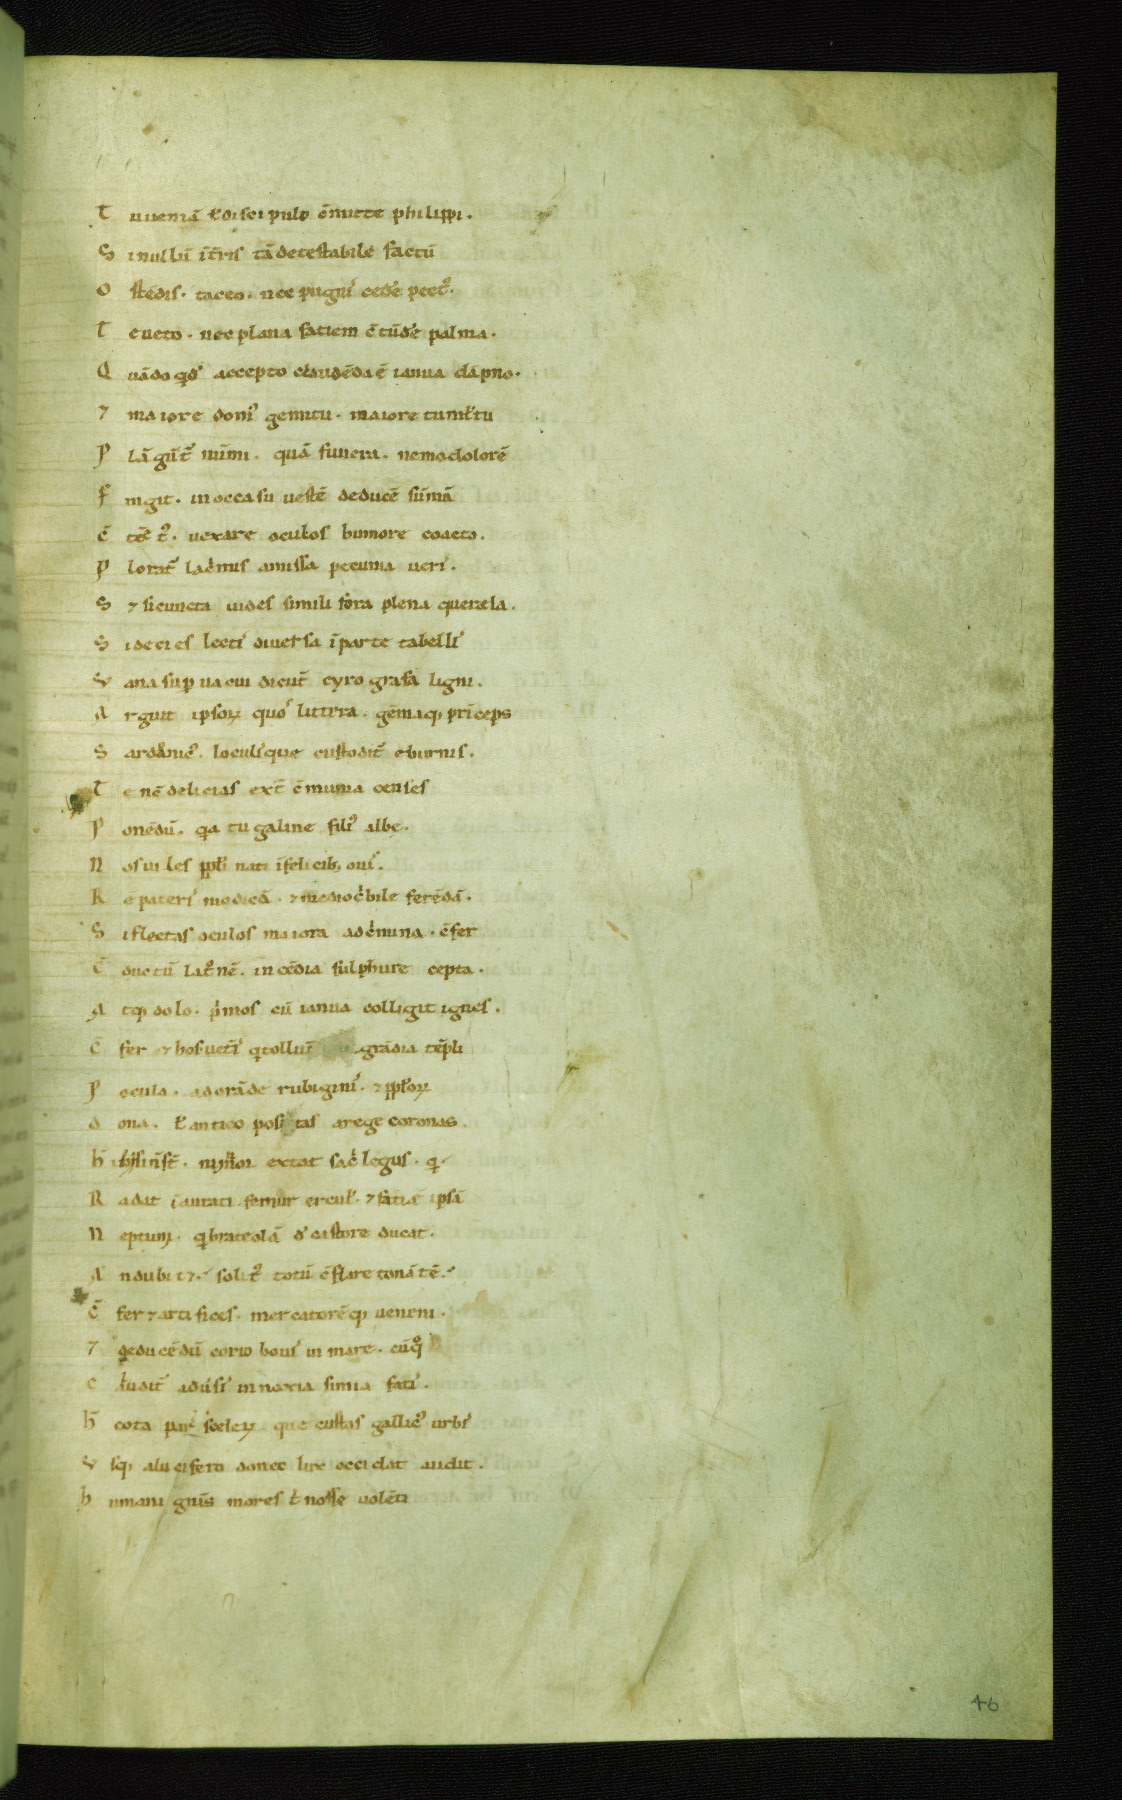 T uueniā & discipulo cōmitte philippi.
S i nullū ī t̄ris tā detestabile factū
O stēdis. taceo. nec pugniſ cedēe pect᾿.
T e ueto. nec plana fatiem c̄tūdēe palma.
Q uādo qdē accepto claudēda ē ianua dāpno.
7 maiore domi᾿ gemitu. maiore tumltu
P lāgūt᾿ nūmi. quā funera. nemo dolorē
F ingit. in occasu uestē deducē sūmā
C̄ tēt᾿. uexare oculos humore coacto.
P lorat᾿ lacrimis amissa pecunia ueri᾿.
S & si cuncta uides simili fora plena querela.
S i decies lecti᾿ diuersa ī parte tabelli᾿
V ana supuacui dicūt cyrografa ligni.
A rguit ipsoꝝ quo᾿ littera. gēmaqꝫ prīceps
S ardonic᾿. loculi᾿que custodit᾿ eburnis.
T e nē delicias extᵃ cōmunia censes
P onēdū. qa tu galine fili᾿ albe.
N os uiles ppli nati īfelicibꝫ oui᾿.
R ē pateri᾿ modicā. 7 mediocri bile ferēdā.
S i flectas oculos maiora ad crimina. c̄fer
C̄ ductū latᵒnē. incēdia sulphure cepta.
A tqꝫ dolo. primos cū ianua colligit ignes.
C̄ fer 7 hos ueti᾿ q tollūt grādia tēpli
P ocula. adorāde rubigini᾿. 7 pploꝝ
D ona. & antico positas a rege coronas.
H̄ ibi si n̄ st̄. minor extat sacrilegus. q
R adat īaurati femur ercul᾿. 7 fatiē ipsā
N eptuni. q brateolā dē castore ducat.
A n dubit 7 solit᾿ totū c̄flare tonātē.
C̄ fer 7 artifices. mercatorēqꝫ ueneni.
7 deducēdū corio boui᾿ in mare. cū q᾿
C ludit᾿ adūsi᾿ innoxia simia fati᾿.
H̄ cota par᾿ sceleꝝ que custos gallic᾿ urbi᾿
V sqꝫ a lucifero donec lux occidat audit.
H umani gn̄is mores t᾿ nosse uolēti
46